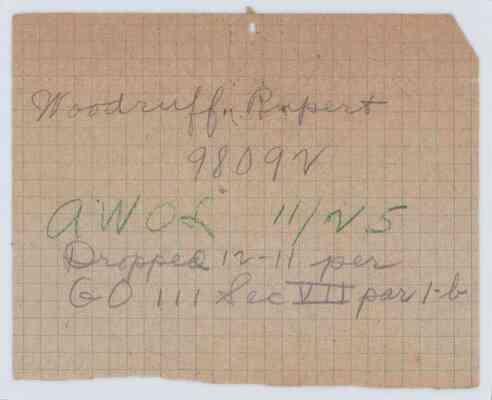 Woodruff, Rupert
98092
AWOL 11/25
Dropped 12-11 per
GO 111 Sec VII par 1-b